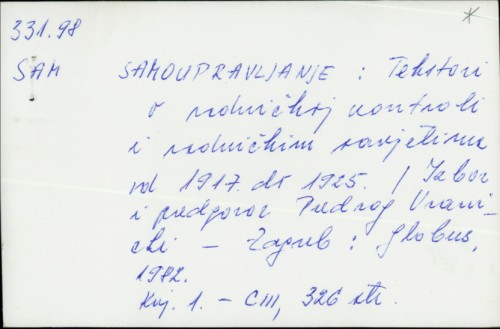 331.98
SAM SAMOUPRAVLJANJE : Tekstovi
o radničkoj kontroli
i radničkim savjetima
od 1917. do 1925. / Izbor
i predgovor Predrag Vrani-
cki – Zagreb : Globus,
1982.
Knj. 1. – CIII, 326 str.